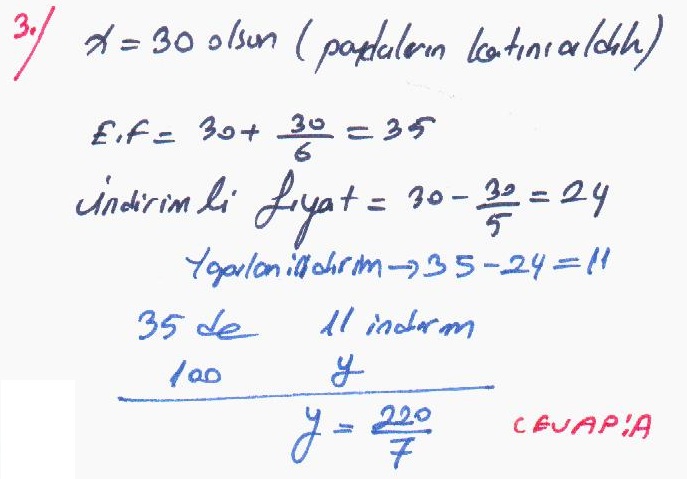 3./ x = 30 olsun ( paydaların katını aldık)
E.F = 30 + 30/6 = 35
indirimli fiyat = 30 - 30/5 = 24
Yapılan indirim → 35 - 24 = 11
35 de 11 indirim
100 y
y = 220/7 CEVAP:A